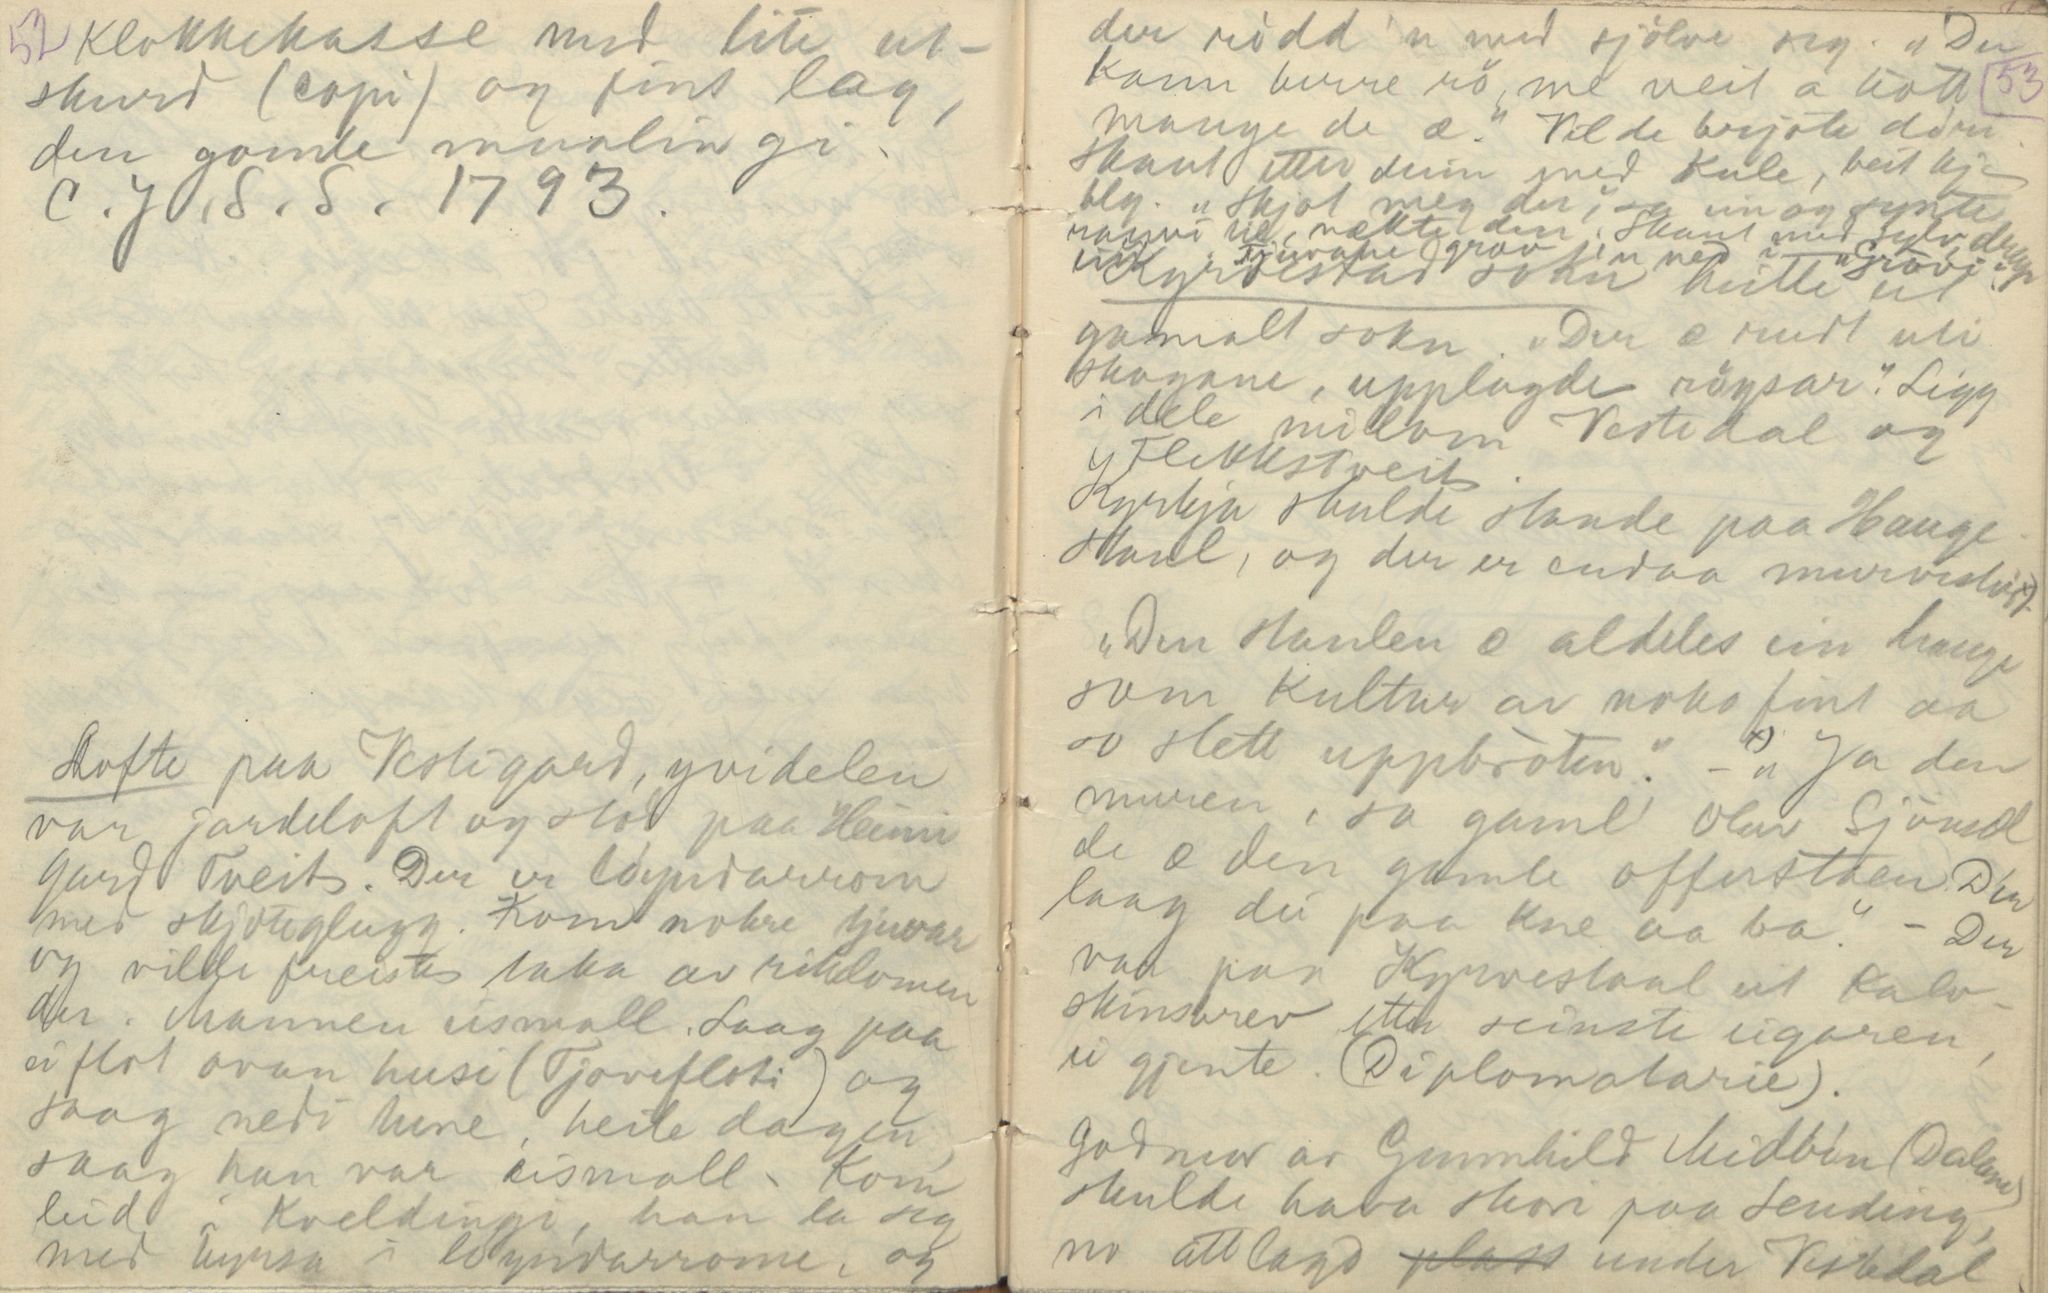 52 Klokkekasse med lite ut-
skurd (copi) og fint lag,
den gamle maalingi.
C.J.S.S. 1793.
Lofte paa Vestigard, yvidelen
var jardeloft og stod paa Heimi
gard Tveit. Der er löyndarrom
med skjoteglugg. Kom nokre tjuvar
og vilde freista taka av rikdomen
der. Mannen eismall. Laag paa
ei flot ovan husi (Tjovefloti) og
saag nedi tune, heile dagen,
saag han var eismall. Kom
leid i Kveldingi, han la seg
med byrsa i löyndarrome, og
der rödd'n med sjölve seg. "Du 53
kann berre rö, me veit a kott
mange de æ." Vilde brjote döri
skaut etter deim med Kule, beit kje
bly. "Skjot meg der", sa ein og synte
Kyrvestad sokn heitte eit
gamalt sokn. "Der æ rudt uti
skogane, upplagde röysar". Ligg
i dele millom Vestedal og
Flekkstveit.
Kyrkja skulde stande paa Hauge-
staul, og der er endaa murrestir x)
"Den staulen æ aldeles ein hauge
som Kultur av noko fint aa
so slett uppbroten." - x) "Ja den
muren, sa gaml' Olav Sjöuvdl
de æ den gamle offerstaen. Der
laag dei paa kne aa ba." - Der
var paa Kyrvestaal eit Kalv-
skinsbrev etter seinste eigaren,
ei gjente. (Diplomatarie).
Godmor av Gunnhild Midbön (Dalane)
skulde hava stovi paa Lending,
no attlagd plass under Vestedal